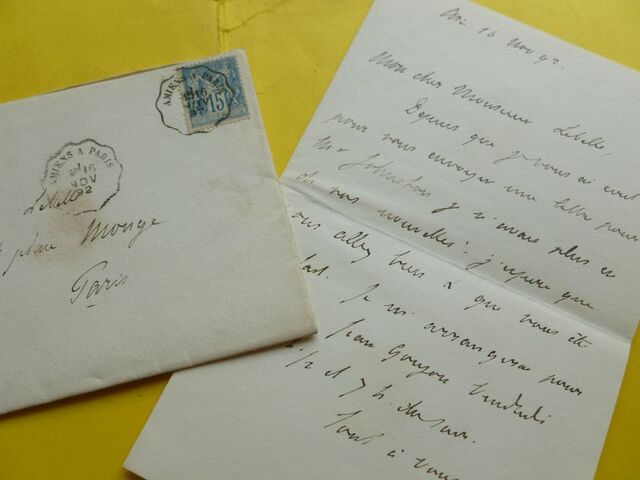 AMIENS A PARIS
16
NOV
92
15
AMIENS A PARIS
16
NOV
92
Lebelle
place Monge
Paris
16 Nov 92
Mon cher Monsieur Lebelle,
Depuis que je vous ai écrit
pour vous envoyer une lettre pour
Mr Johnston je n'ai plus eu
de vos nouvelles: j'espère que
vous allez bien & que vous êtes
Je m'arrangerai pour
Jean Goujon Vendredi
et 7 h. du soir.
Tout à vous